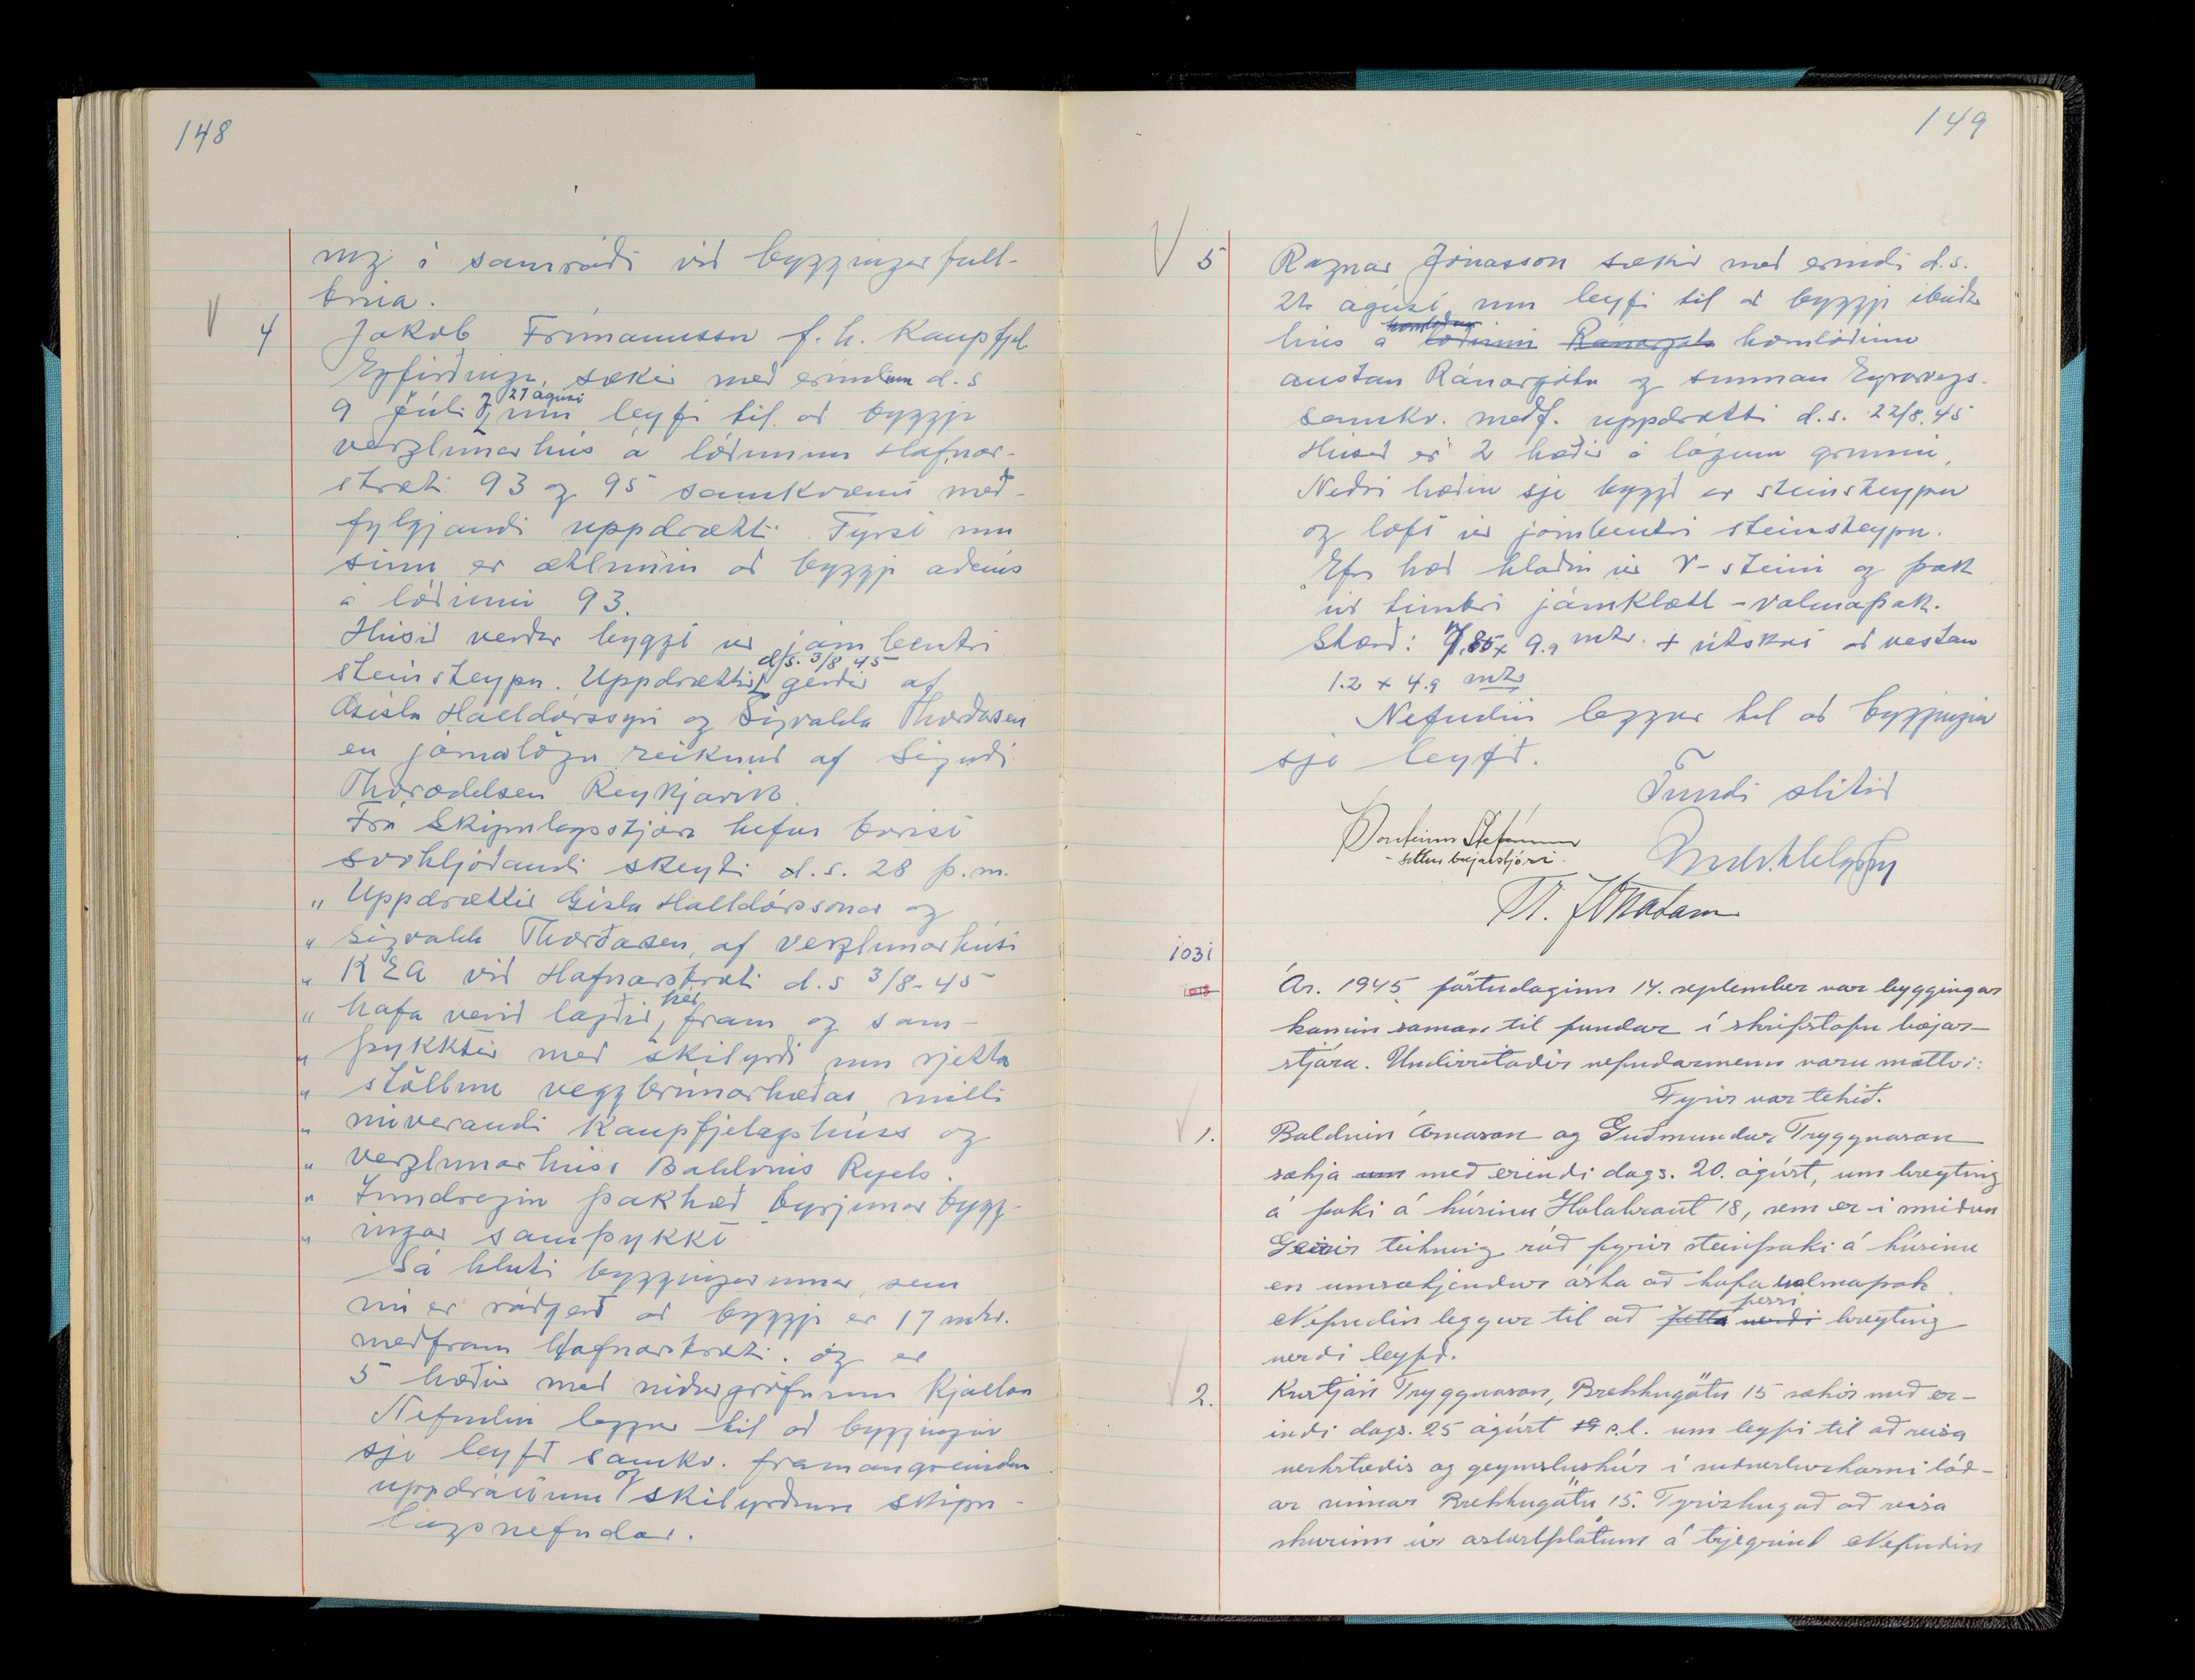 148
ing í samráði við byggingarfull-
trúa.
4 Jakob Frímannsson f. h. Kaupfjel
Eyfirðinga, sækir með erindum d.s
9 júlí og 27 ágúst um leyfi til að byggja
verzlunarhús á lóðunum Hafnar-
stræti 93 og 95 samkvæmt með-
fylgjandi uppdrætti. Fyrst um
sinn er ætlunin að byggja aðeins
á lóðinni 93.
Húsið verður byggt úr járnbentri
steinsteypu. Uppdrættir d/s. 3/8 45 gerðir af
Gísla Halldórssyni og Sigvalda Thordarsen
en járnalögn reiknuð af Sigurði
Thoroddsen Reykjavík.
Frá Skipulagsstjóra hefur borist
svohljóðandi skeyti d.s. 28 þ.m.
„ Uppdrættir Gísla Halldórssonar og
„ Sigvalda Thordarsen, af verzlunarhúsi
„ KEA við Hafnarstræti d.s 3/8-45
„ hafa verið lagðir hér fram og sam-
„ þykktir með skilyrði um rjetta
„ stöllun veggbrúnarhæðar milli
„ núverandi Kaupfjelagshúss og
„ verzlunarhúss Baldvins Ryels.
„ Inndregin þakhæð byrjunarbygg-
„ ingar samþykkt
Sá hluti byggingarinnar, sem
nú er ráðgerð að byggja er 17 mtr.
meðfram Hafnarstræti. og er
5 hæðir með niðurgröfnum kjallara
Nefndin leggur til að byggingin
sje leyfð samkv. framangreindum
uppdráttum og skilyrðum skipu-
lagsnefndar.
149
5 Ragnar Jónasson sækir með erindi d.s.
22. ágúst um leyfi til að byggja íbúðar
hús á lóðinni Ránargata hornlóðinni
austan Ránargötu og sunnan Eyrarvegs.
samkv. meðf. uppdrætti d.s. 22/8.45
Húsið er 2 hæðir á lágum grunni,
Neðri hæðin sje byggð úr steinsteypu
og loft úr járnbentri steinsteypu.
Efri hæð hlaðin úr V-steini og þak
úr timbri járnklætt - valmaþak.
Stærð: 7,85 x 9.9 mtr. + útskot að vestan
1.2 x 4.9 mtr
Nefndin leggur til að byggingin
sje leyfð.
Fundi slitið
Þorsteinn Stefánsson
- settur bæjarstjóri.
Tr. Jónatanss
1031
Ár. 1945, föstudaginn 14. september var byggingar
komin saman til fundar í skrifstofu bæjar-
stjóra. Undirritaðir nefndarmenn voru mættir:
Fyrir var tekið.
1. Baldvin Árnason og Guðmundur Tryggvason
sækja um með erindi dags. 20. ágúst, um breyting
á þaki á húsinu Holabraut 18, sem er í smíðum
Gerir teikning ráð fyrir steinþaki á húsinu
en umsækjendur óska að hafa valmaþak.
Nefndin leggur til að þetta verði þessi breyting
verði leyfð.
2. Kristján Tryggvason, Brekkugötu 15 sækir með er-
indi dags. 25 ágúst s.l. um leyfi til að reisa
verkstæðis og geymsluhús í suðvesturhorni lóð-
ar sinnar Brekkugötu 15. Fyrirhugað að reisa
skúrinn úr asbestplötum á trjegrind Nefndin